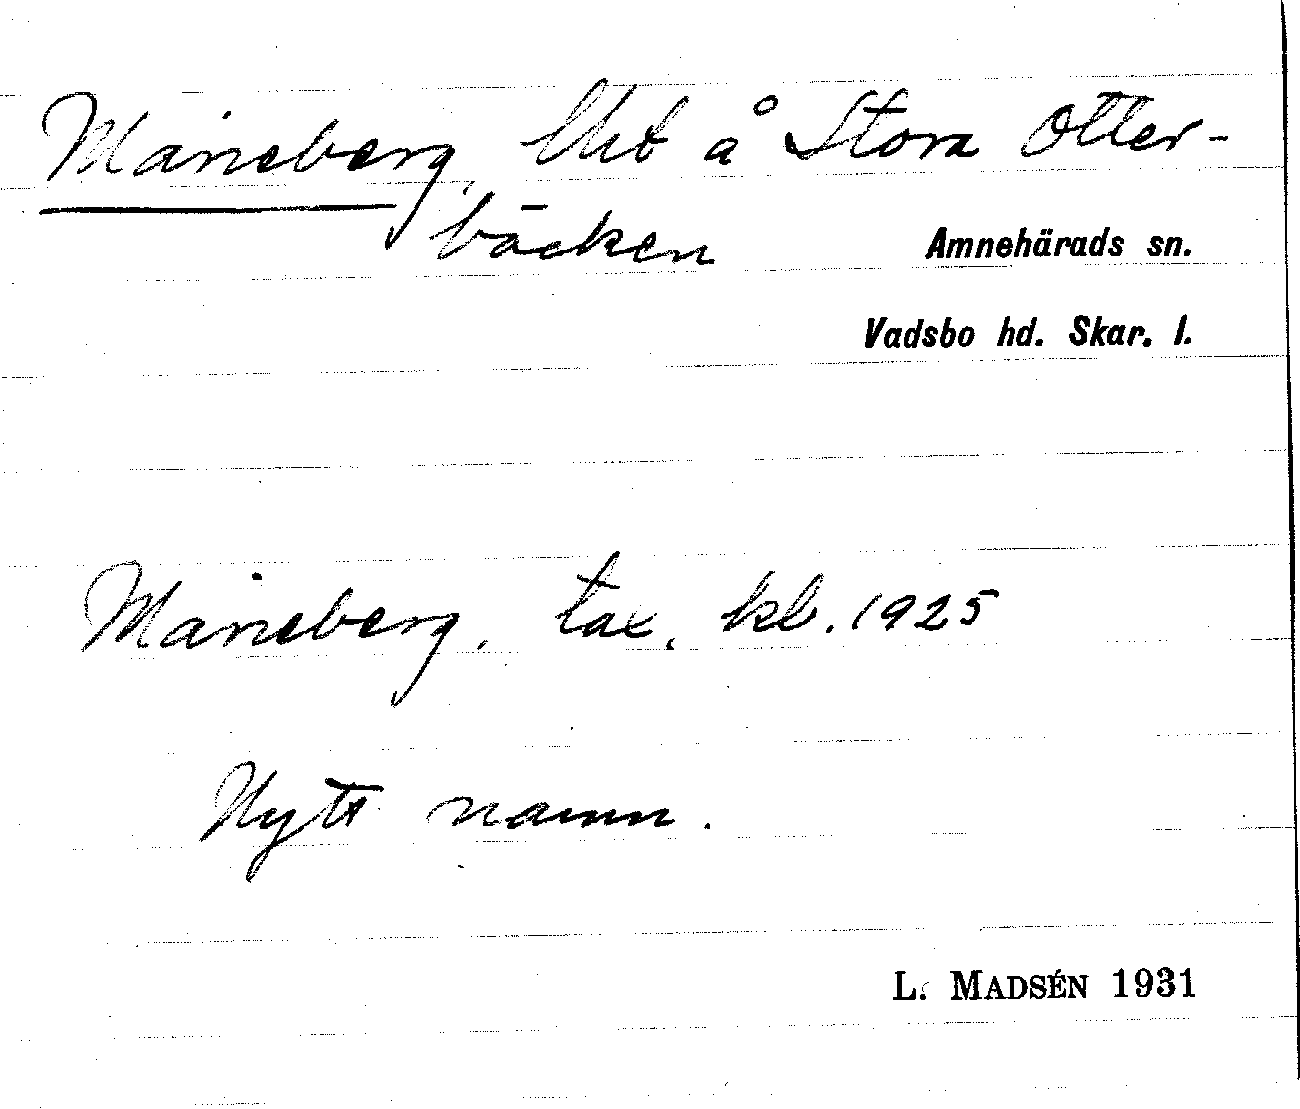 Måneberg, Uet å Stora Otter-
bäcken
Amnehärads sn.
Vadsbo hd. Skar. l.
Måneberg. tax. kl. 1925
Nytt namn.
L. MADSÉN 1931